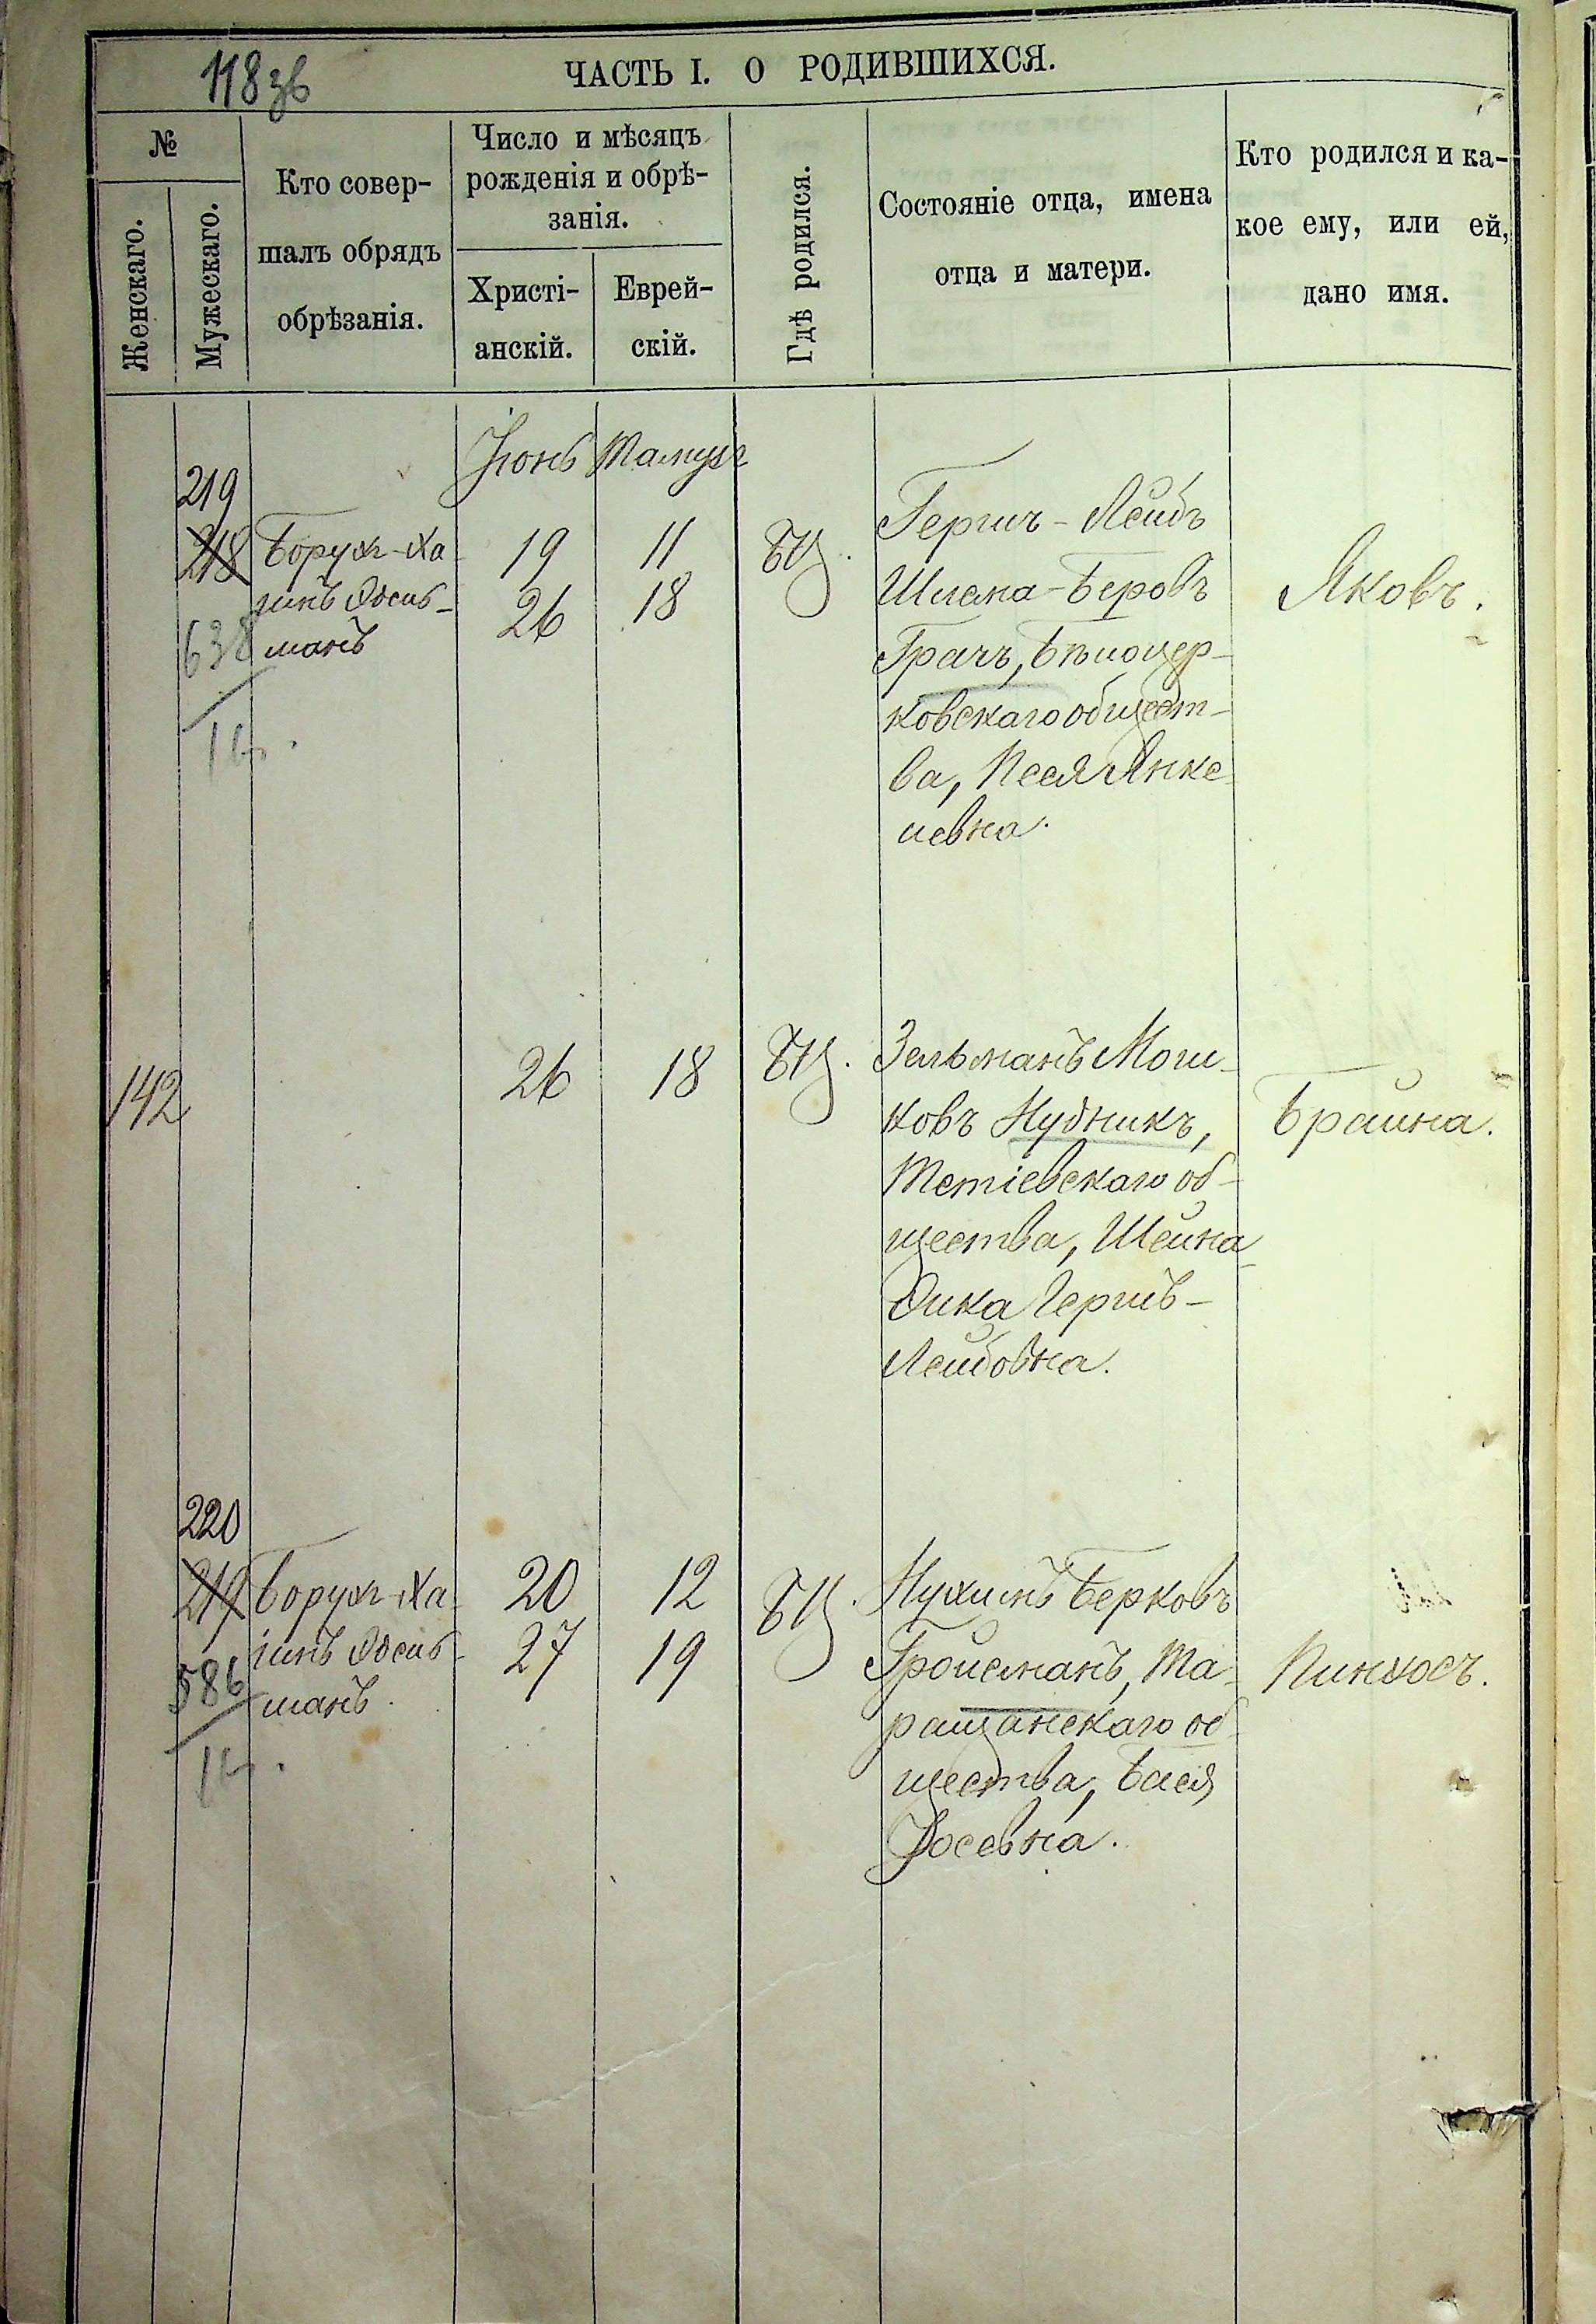 118 зв
ЧАСТЬ I. О РОДИВШИХСЯ.
№
Женскаго.
Мужескаго.
Кто совер-
шалъ обрядъ
обрѣзанія.
Число и мѣсяцъ
рожденія и обрѣ-
занія.
Христі-
анскій.
Еврей-
скій.
Гдѣ родился.
Состояніе отца, имена
отца и матери.
Кто родился и ка-
кое ему, или ей,
дано имя.
Іюнь Тамузъ
219
218
638
Борухъ-Ха
имъ
манъ
19 11
26 18
БЦ.
Гершъ-Лейбъ
Шлема-Беровъ
Грачъ, Бѣлоцер-
ковскаго общест-
ва, Песя Янке
левна.
Яковъ.
142
26 18
БЦ.
Зельманъ Мош-
ковъ Нудникъ,
Тетіевскаго об-
щества, Шейна
Гершъ-
Лейбовна.
Брайна.
220
219
586
Борухъ-Ха
имъ
манъ
20 12
27 19
БЦ.
Нухимъ Берковъ
Гройсманъ, Та-
ращанскаго об
щества, Бася
Іосевна.
Пинхосъ.